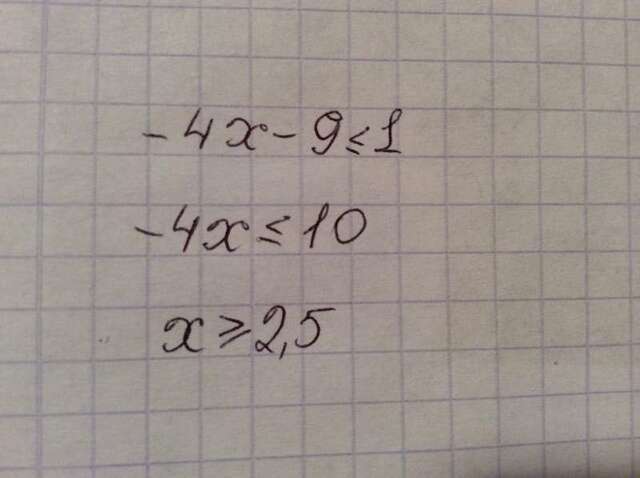 -4x-9≤1
-4x≤10
x≥2,5